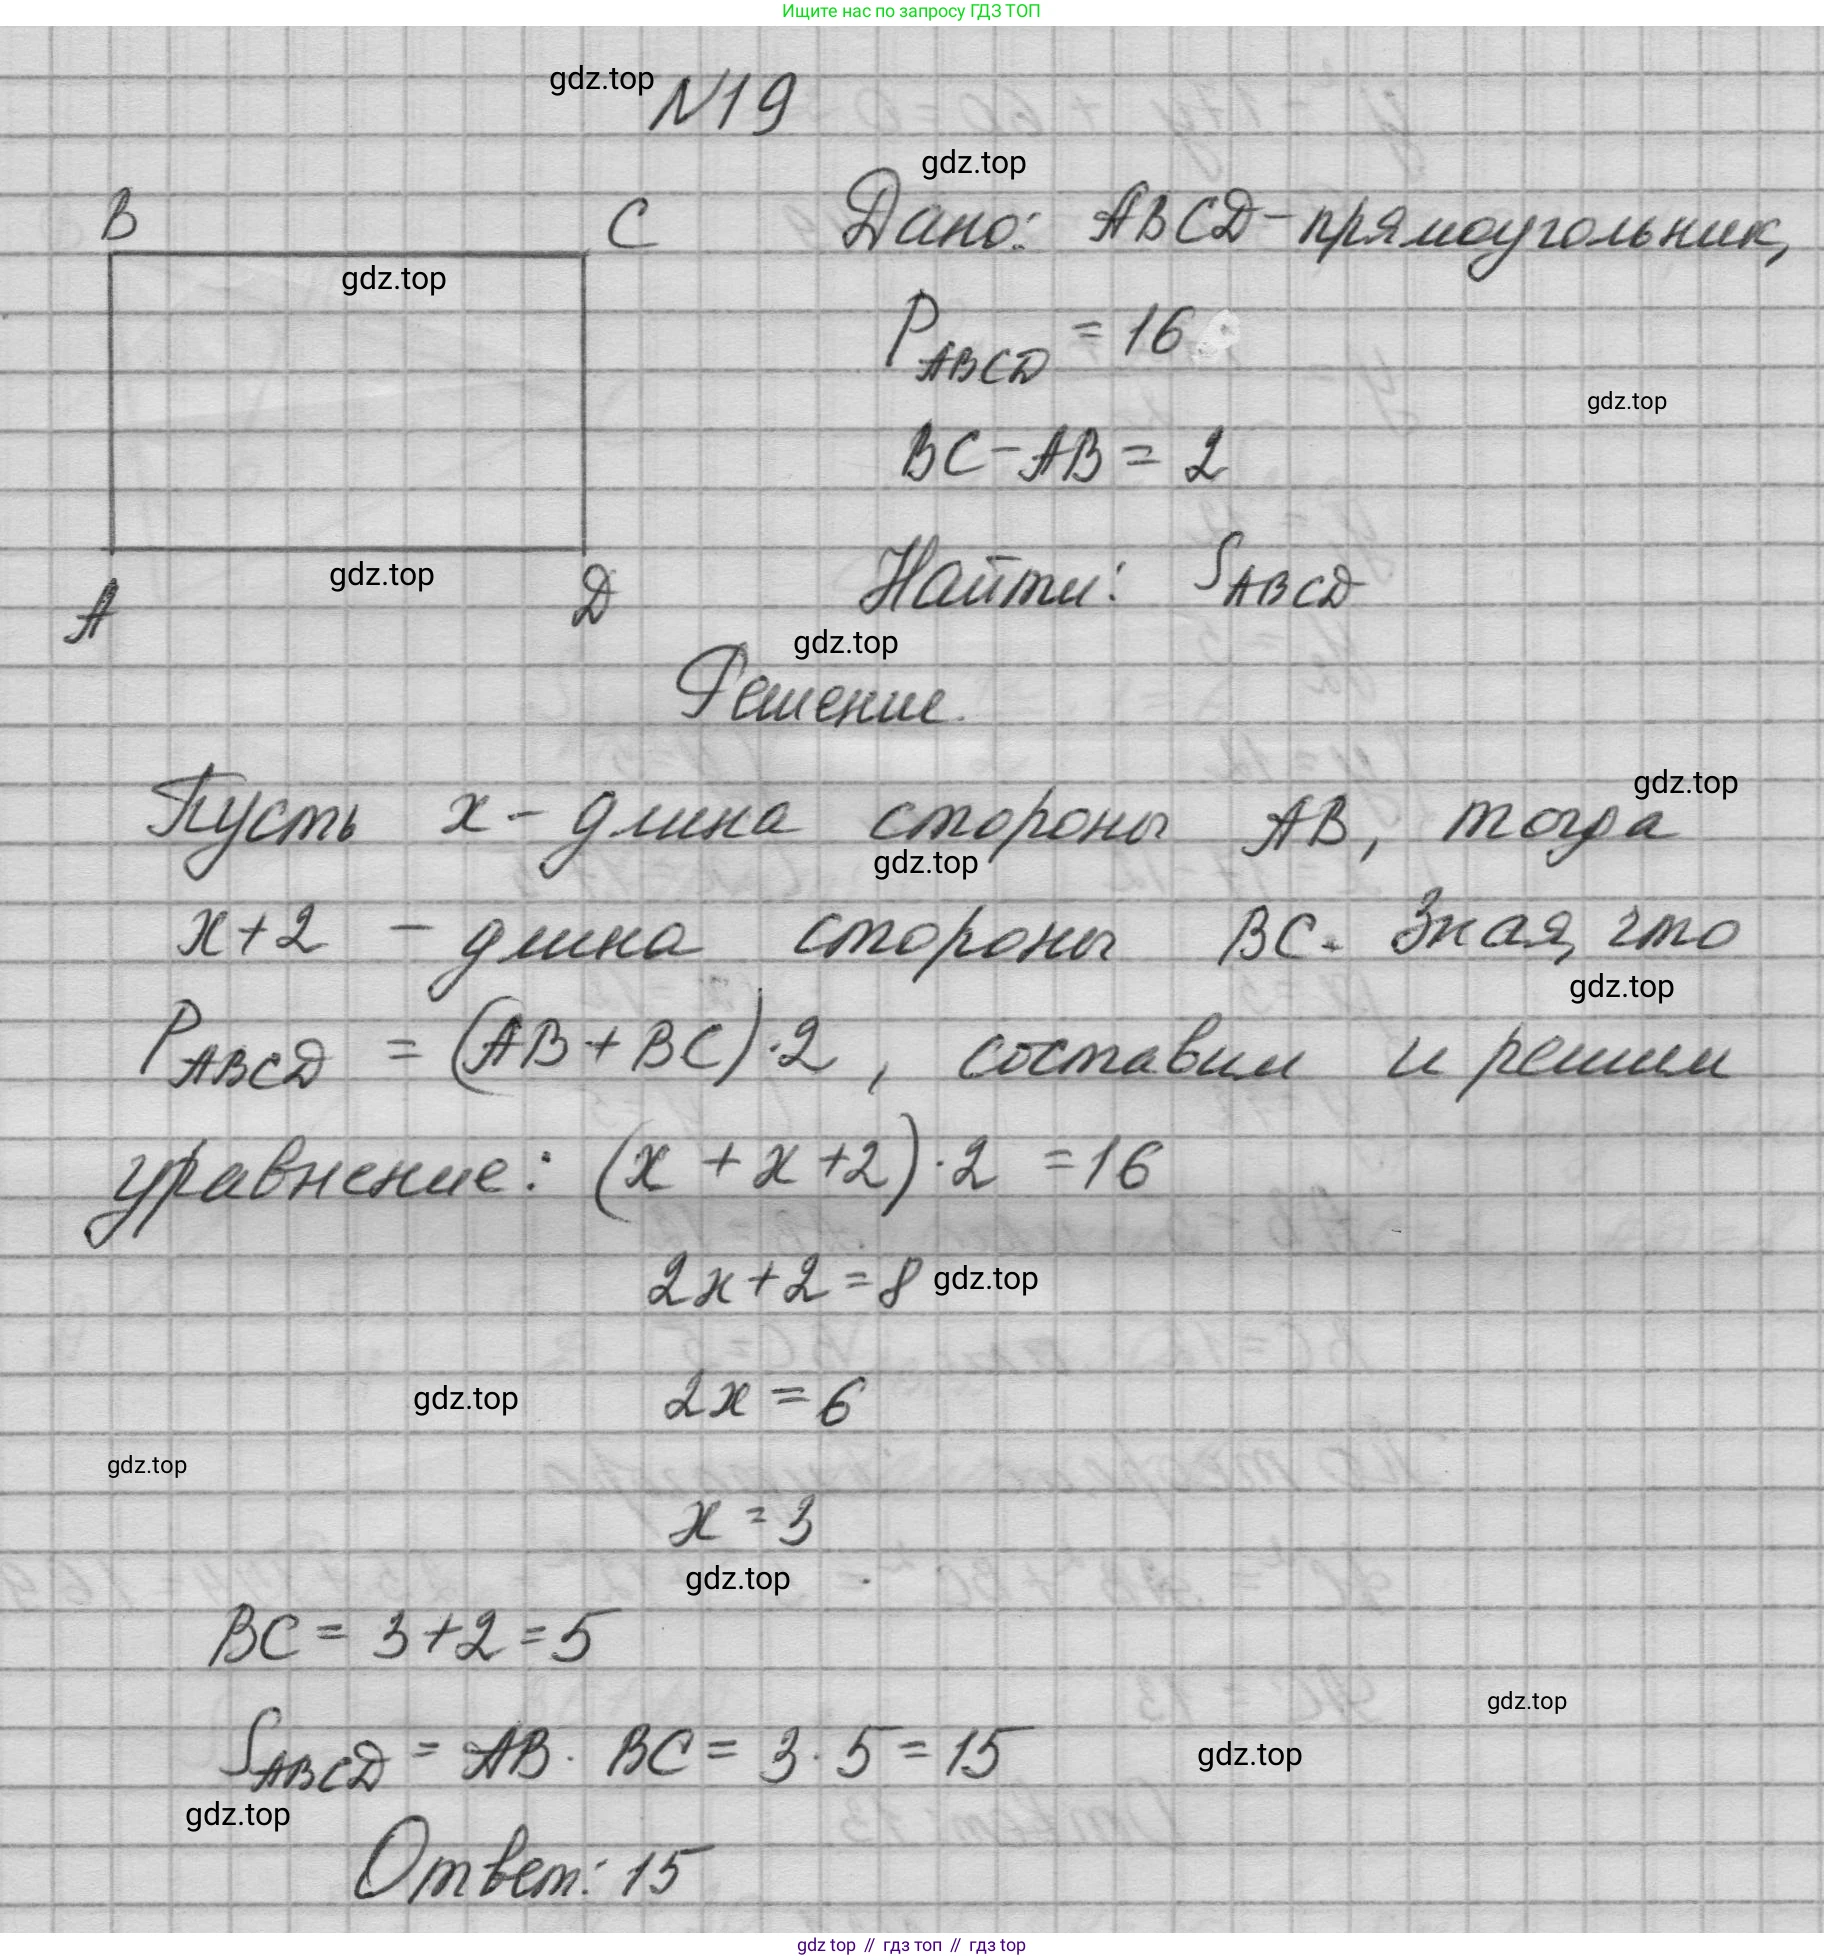 Ищите нас по запросу ГДЗ ТОП
gdz.top
№19
gdz.top
B
C
Дано: ABCD-прямоугольник,
gdz.top
P ABCD = 16
gdz.top
BC-AB = 2
Найти: S ABCD
gdz.top
A
D
gdz.top
Решение.
gdz.top
Пусть x - длина стороны AB, тогда
gdz.top
x+2 - длина стороны BC. Зная, что
gdz.top
P ABCD = (AB+BC)·2, составим и решим
уравнение: (x + x +2)·2 =16
2x+2=8
gdz.top
gdz.top
2x=6
gdz.top
x=3
gdz.top
BC= 3+2=5
gdz.top
S ABCD = AB · BC = 3·5=15
gdz.top
gdz.top
Ответ: 15
gdz top // гдз топ // gdz.top